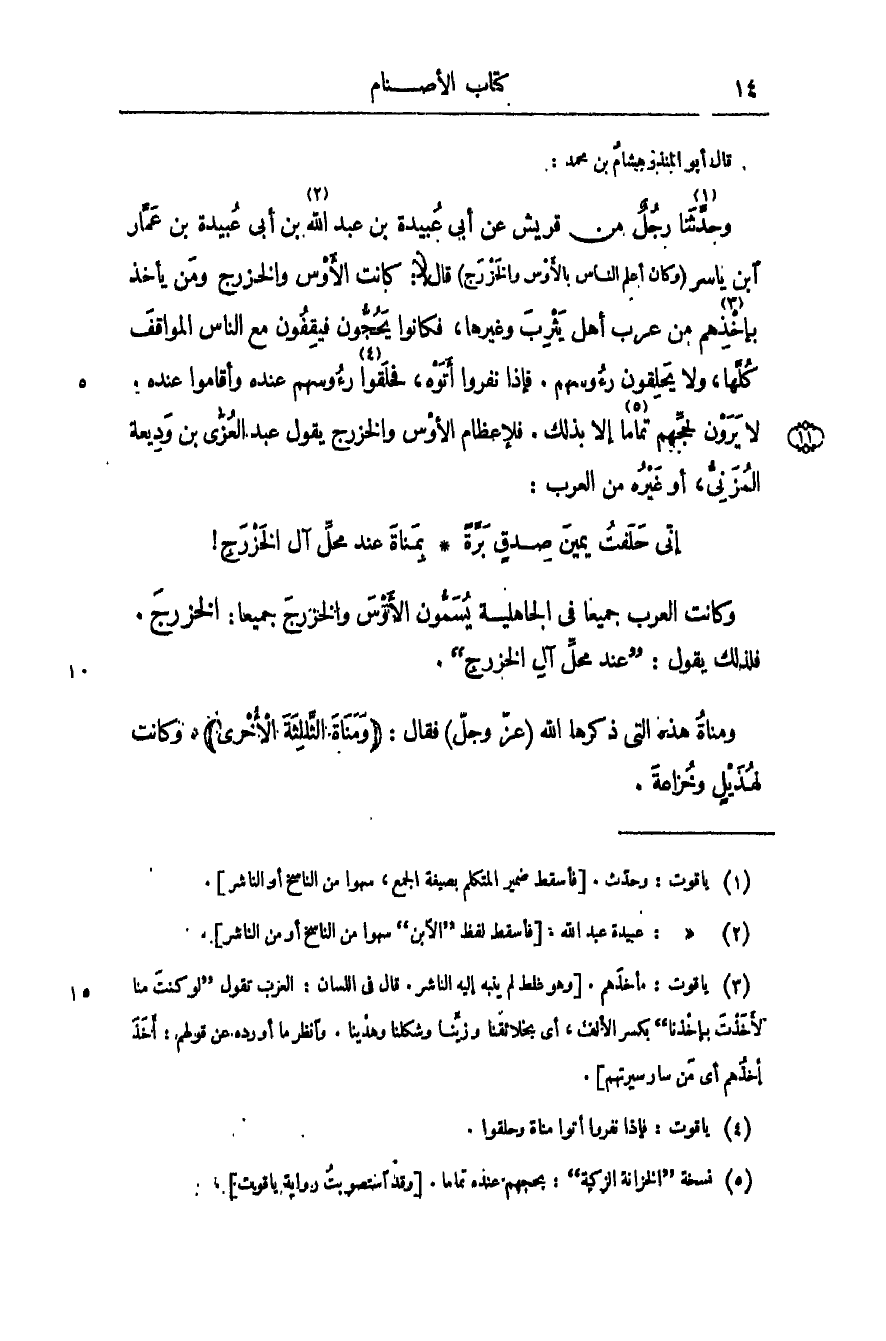 ١٤ كتاب الأصنام
قال أبو المنذر هشامُ بن محمد :
(١) (٢)
وحدَّثَنَا رجُلٌ من قريش عن أبى عُبيدة بن عبد الله بن أبى عُبيدة بن عَمَّار
آبن ياسر (وكان أعلم الناس بالأَوْس والخَزْرَج) قال : كانت الأَوْس والخزرج ومَن يأخذ
(٣)
بإخْذِهم من عرب أهل يَثْرِبَ وغيرها، فكانوا يَحُجُّون فيقِفُون مع الناس المواقفَ
(٤)
كلَّها، ولا يَحلِقون رءُوسهم . فإذا نفروا أَتَوْه، فحلَقوا رءُوسهم عنده وأقاموا عنده : ٥
(٥)
لا يَرَوْن لحجِّهم تماما إلا بذلك . فلإعظام الأوْس والخزرج يقول عبد العُزّٰى بن وَدِيعة (١١)
المُزَنِىُّ، أو غَيْرُه من العرب :
إنّى حَلَفتُ يمينَ صِدقٍ بَرَّةً * بِمَناةَ عند محلِّ آل الخَزْرَجِ!
وكانت العرب جميعًا فى الجاهلية يُسَمُّون الأَوْسَ والخزرجَ جميعا: الخزرجَ .
فلذلك يقول : ”عند محلِّ آلِ الخزرج“ . ١٠
ومناةُ هذه التى ذكرها الله (عزّ وجلّ) فقال : ((وَمَنَاةَ الثَّالِثَةَ الْأُخْرىٰ)) ، وكانت
لهُذَيْلٍ وخُزاعةَ .
(١) ياقوت : وحدّث . [فأسقط ضمير المتكلم بصيغة الجمع، سهوا من الناسخ أو الناشر] .
(٢) « : عبيدة عبد الله : [فأسقط لفظ ”الآبن“ سهوا من الناسخ أو من الناشر] .
(٣) ياقوت : مأخذَهم . [وهو غلط لم ينبه إليه الناشر . قال فى اللسان : العرب تقول ”لو كنت منا ١٥
لأَخَذْتَ بإخْذنا“ بكسر الألف، أى بخلائقنا وزيِّنا وشكلنا وهدْينا . وآنظر ما أورده عن قولهم : أَخَذَ
أخْذَهم أى مَن سار سيرتهم] .
(٤) ياقوت : فإذا نفروا أتوا مناة وحلقوا .
(٥) نسخة ”الخزانة الزكية“ : بحجهم عنده تماما . [وقد آستصوبتُ رواية ياقوت] .